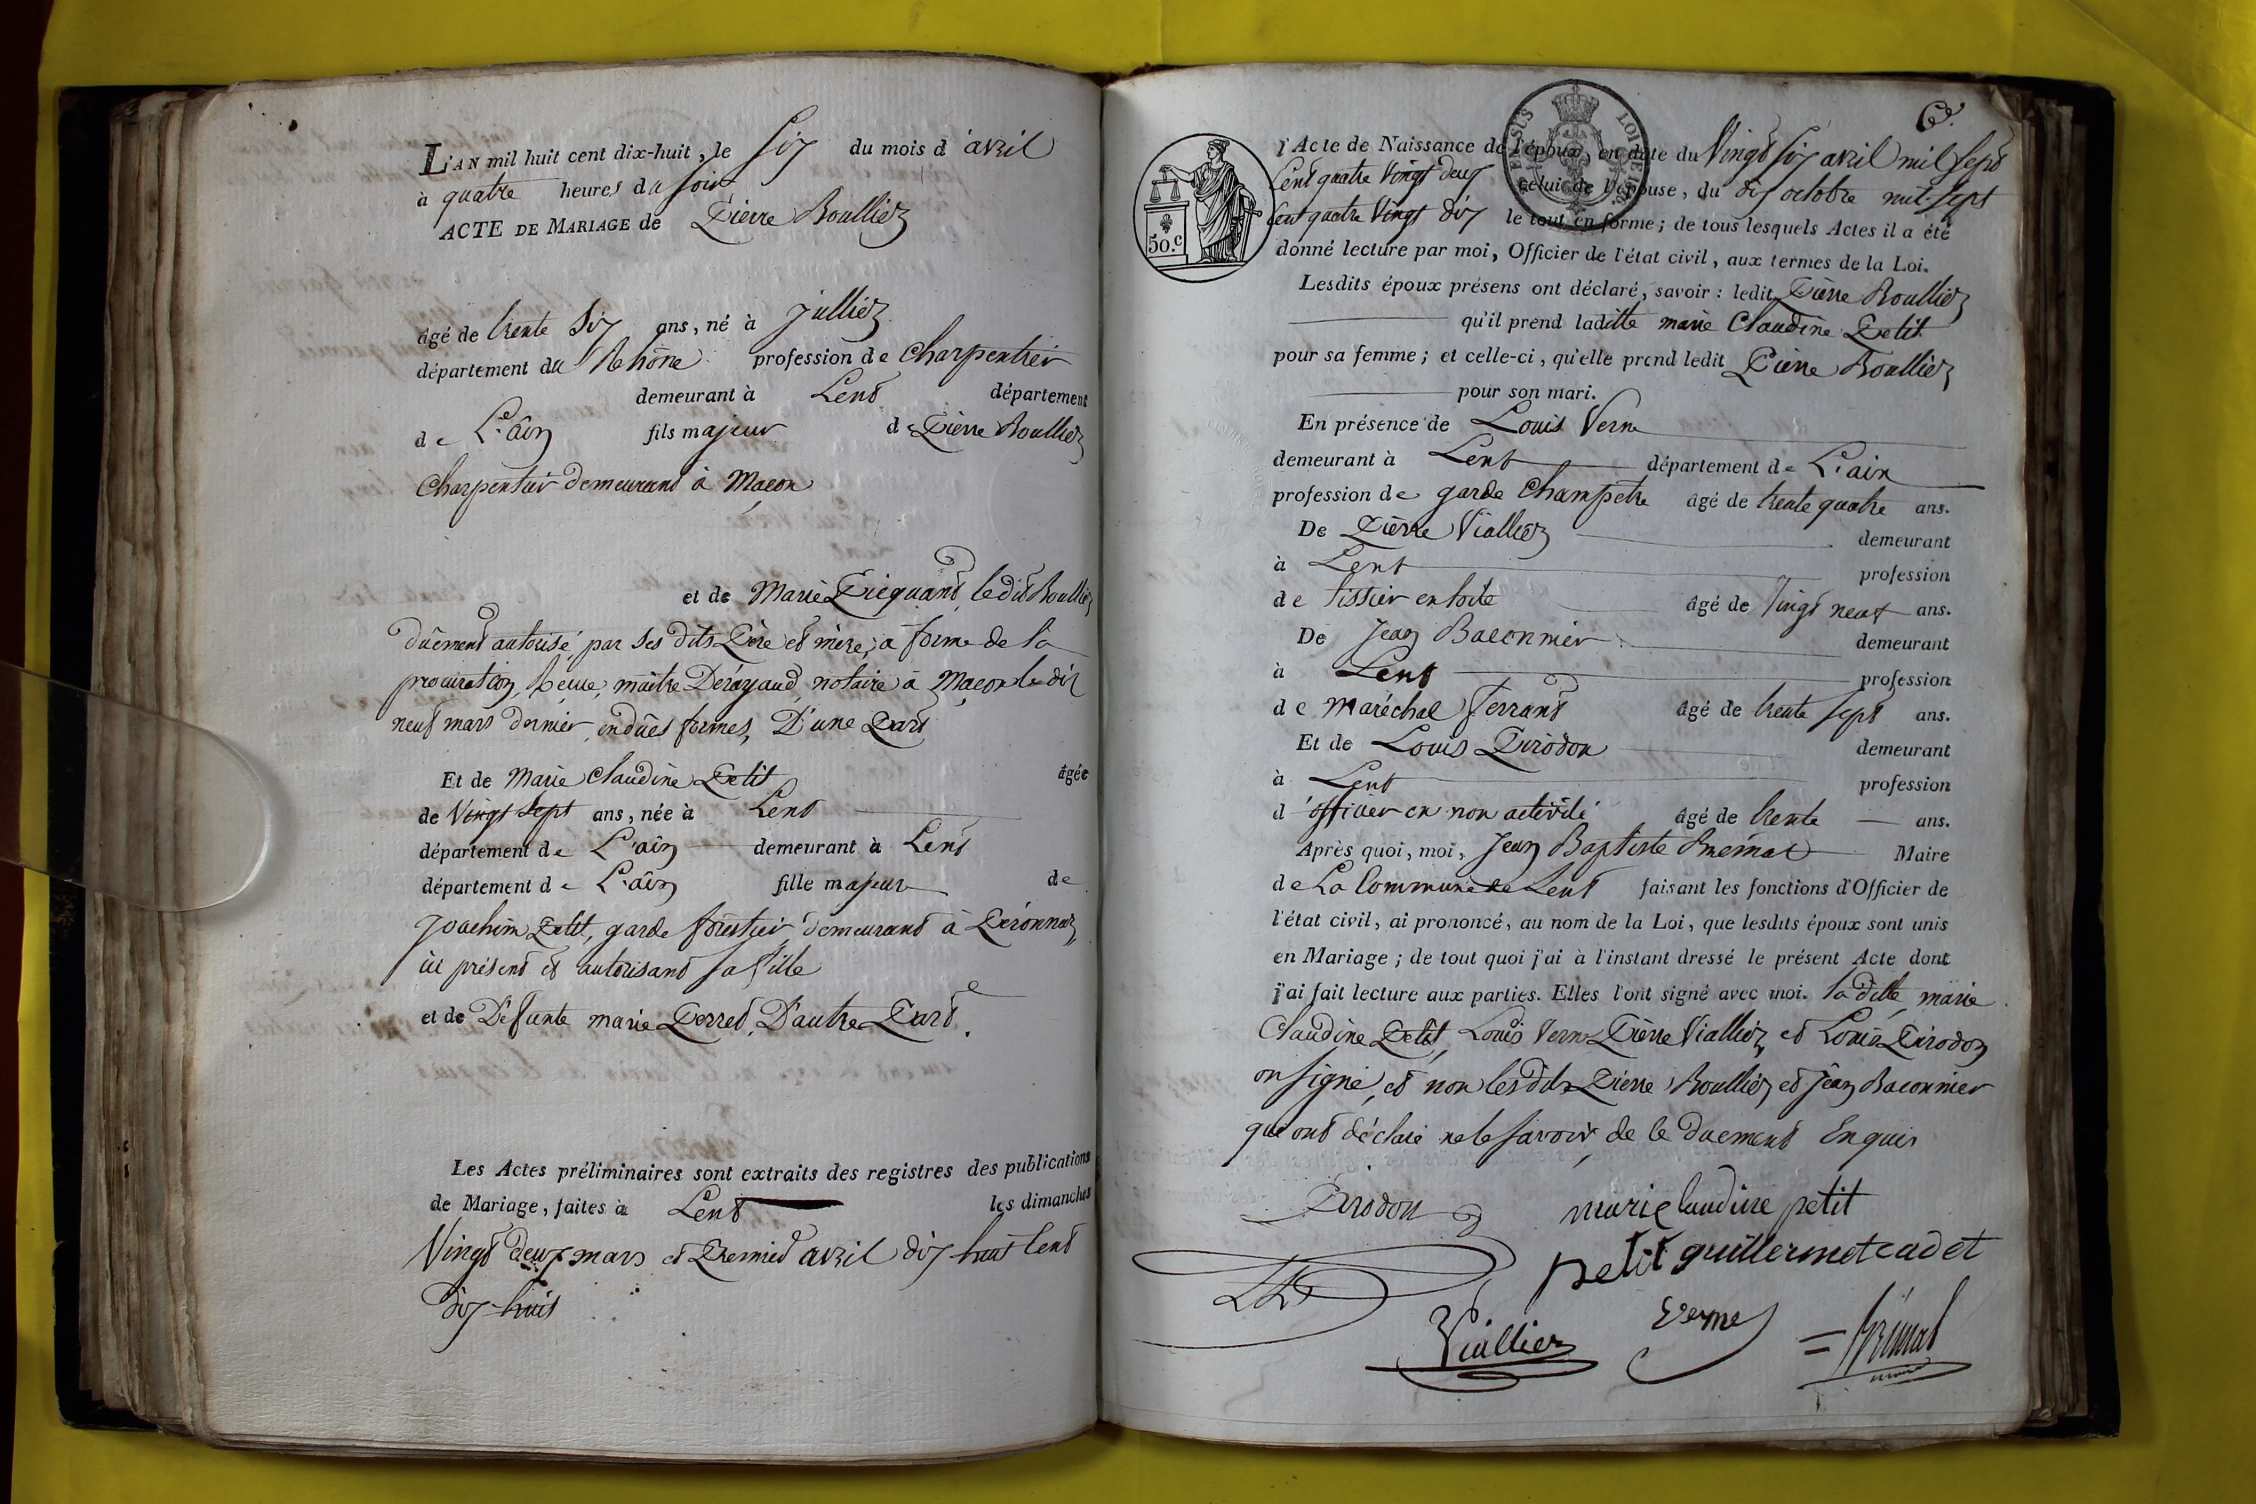 L'AN mil huit cent dix-huit, le Six du mois d'avril
à quatre heures du soir
ACTE DE MARIAGE de Pierre Roulliez
âgé de trente Six ans, né à Julliez
département du Rhône profession de Charpentier
demeurant à Lent département
de L'ain fils majeur de Pierre Roulliez
Charpentier demeurant à Macon
et de Marie Picquand, le dit Roulliez
duement autorisé, par ses dits Père et mère, à forme de la
procuration, maître notaire à Maçon le dix
neuf mars dernier, en dües formes, D'une Part
Et de Marie Claudine Petit âgée
de Vingt Sept ans, née à Lent
département de L'ain demeurant à Lent
département de L'ain fille majeure de
Joachim Petit, garde forestier demeurant à Péronnaz,
ici présent et autorisant sa fille
et de Défunte marie Perret, D'autre Part.
Les Actes préliminaires sont extraits des registres des publications
de Mariage, faites à Lent les dimanches
Vingt deux mars et Premier avril dix huit Cent
dix-huit
l'Acte de Naissance de l'époux, en date du Vingt Six avril mil Sept
Cent quatre Vingt deux celui de l'épouse, du dix octobre mil-sept
Cent quatre Vingt dix le tout en forme; de tous lesquels Actes il a été
donné lecture par moi, Officier de l'état civil, aux termes de la Loi.
50.c
Lesdits époux présens ont déclaré, savoir: ledit Pierre Roulliez
qu'il prend laditte marie Claudine Petit
pour sa femme; et celle-ci, qu'elle prend ledit Pierre Roulliez
pour son mari.
En présence de Louis Verne
demeurant à Lent département de L'ain
profession de garde Champetre âgé de trente quatre ans.
De Pierre Vialliez demeurant
à Lent profession
de tissier en toile âgé de Vingt neuf ans.
De Jean Baconnier demeurant
à Lent profession
de maréchal ferrant âgé de trente sept ans.
Et de Louis Pirodon demeurant
à Lent profession
d'officier en non activité âgé de trente ans.
Après quoi, moi, Jean Baptiste Maire
de La Commune de Lent faisant les fonctions d'Officier de
l'état civil, ai prononcé, au nom de la Loi, que lesdits époux sont unis
en Mariage; de tout quoi j'ai à l'instant dressé le présent Acte dont
j'ai fait lecture aux parties. Elles l'ont signé avec moi. la ditte, marie
Claudine Petit, Louis Verne Pierre Vialliez, et Louis Pirodon
on signé, et non les dits Pierre Roulliez et Jean Baconnier
que ont déclaré ne le savoir, de le duement Enquis
Pirodon
marie claudine petit
petit guillermet cadet
Vialliez
Verne